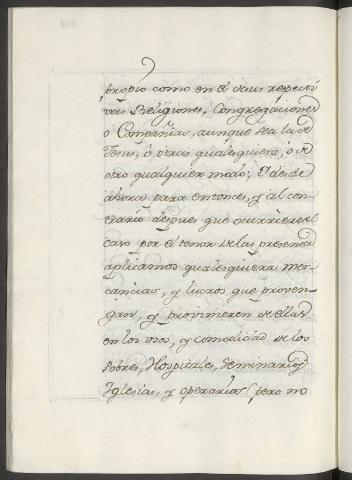 propio como en el de sus respecti
vas Religiones, Congregaciones
ò Compañias, aunque sea la de
Jesus, ò otras qualesquiera, ò de
otro qualquier modo; Y desde
ahora para entonces, y al con
trario despues que ocurriere el
caso por el tenor de las presentes
aplicamos qualesquiera mer-
cancias, y lucros que proven-
gan, y provinieren de ellas
en los usos, y comodidad de los
Pobres, Hospitales, Seminarios,
Iglesias, y operarios (pero no